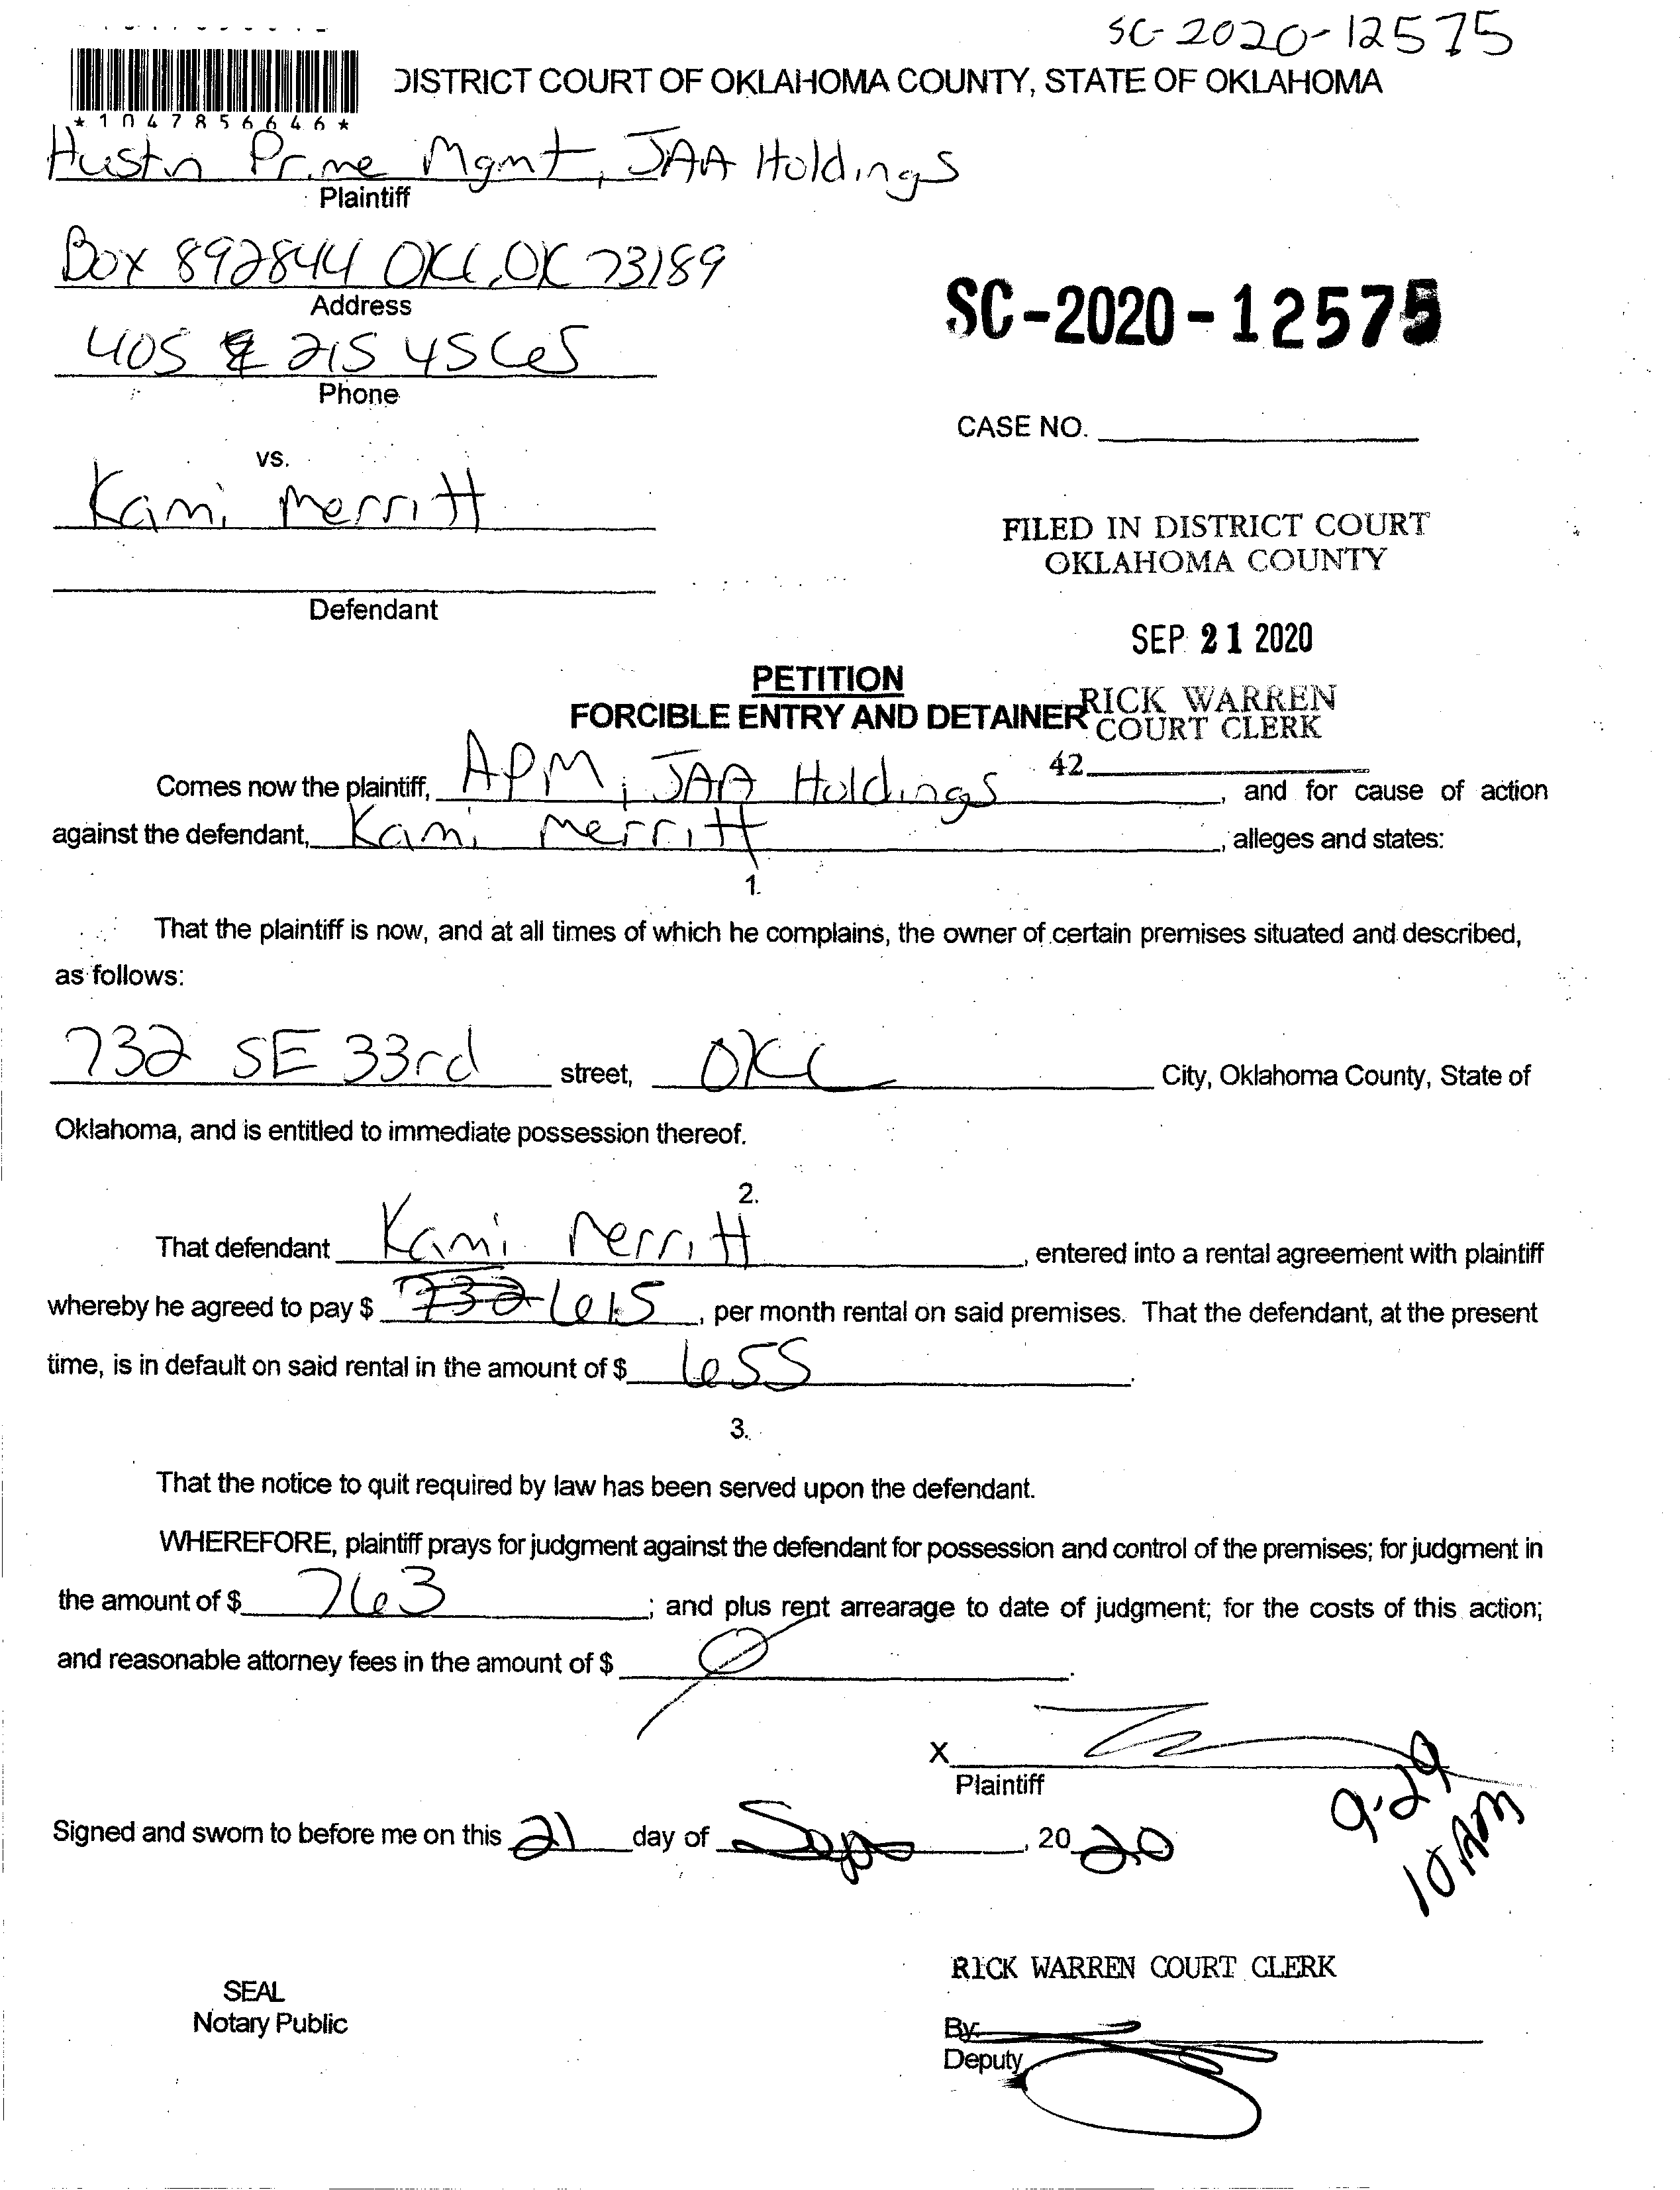 SC-2020-12575
DISTRICT COURT OF OKLAHOMA COUNTY, STATE OF OKLAHOMA
*1047856646*
Prime Mgmt, JAA Holdings
Plaintiff
Box 892844 OKC, OK 73189
Address
405 215 4565
Phone
SC-2020-12575
CASE NO.
vs.
Kami Merritt
FILED IN DISTRICT COURT
OKLAHOMA COUNTY
Defendant
SEP 21 2020
PETITION
FORCIBLE ENTRY AND DETAINER
RICK WARREN
COURT CLERK
42
Comes now the plaintiff, APM, JAA Holdings, and for cause of action
against the defendant, Kami Merritt, alleges and states:
1.
That the plaintiff is now, and at all times of which he complains, the owner of certain premises situated and described,
as follows:
732 SE 33rd street, OKC City, Oklahoma County, State of
Oklahoma, and is entitled to immediate possession thereof.
2.
That defendant Kami Merritt, entered into a rental agreement with plaintiff
whereby he agreed to pay $ 732 615, per month rental on said premises. That the defendant, at the present
time, is in default on said rental in the amount of $ 655.
3.
That the notice to quit required by law has been served upon the defendant.
WHEREFORE, plaintiff prays for judgment against the defendant for possession and control of the premises; for judgment in
the amount of $ 763; and plus rent arrearage to date of judgment; for the costs of this action;
and reasonable attorney fees in the amount of $ 0.
X
Plaintiff
9-29
10 AM
Signed and sworn to before me on this 21 day of Sep, 2020
RICK WARREN COURT CLERK
SEAL
Notary Public
By:
Deputy